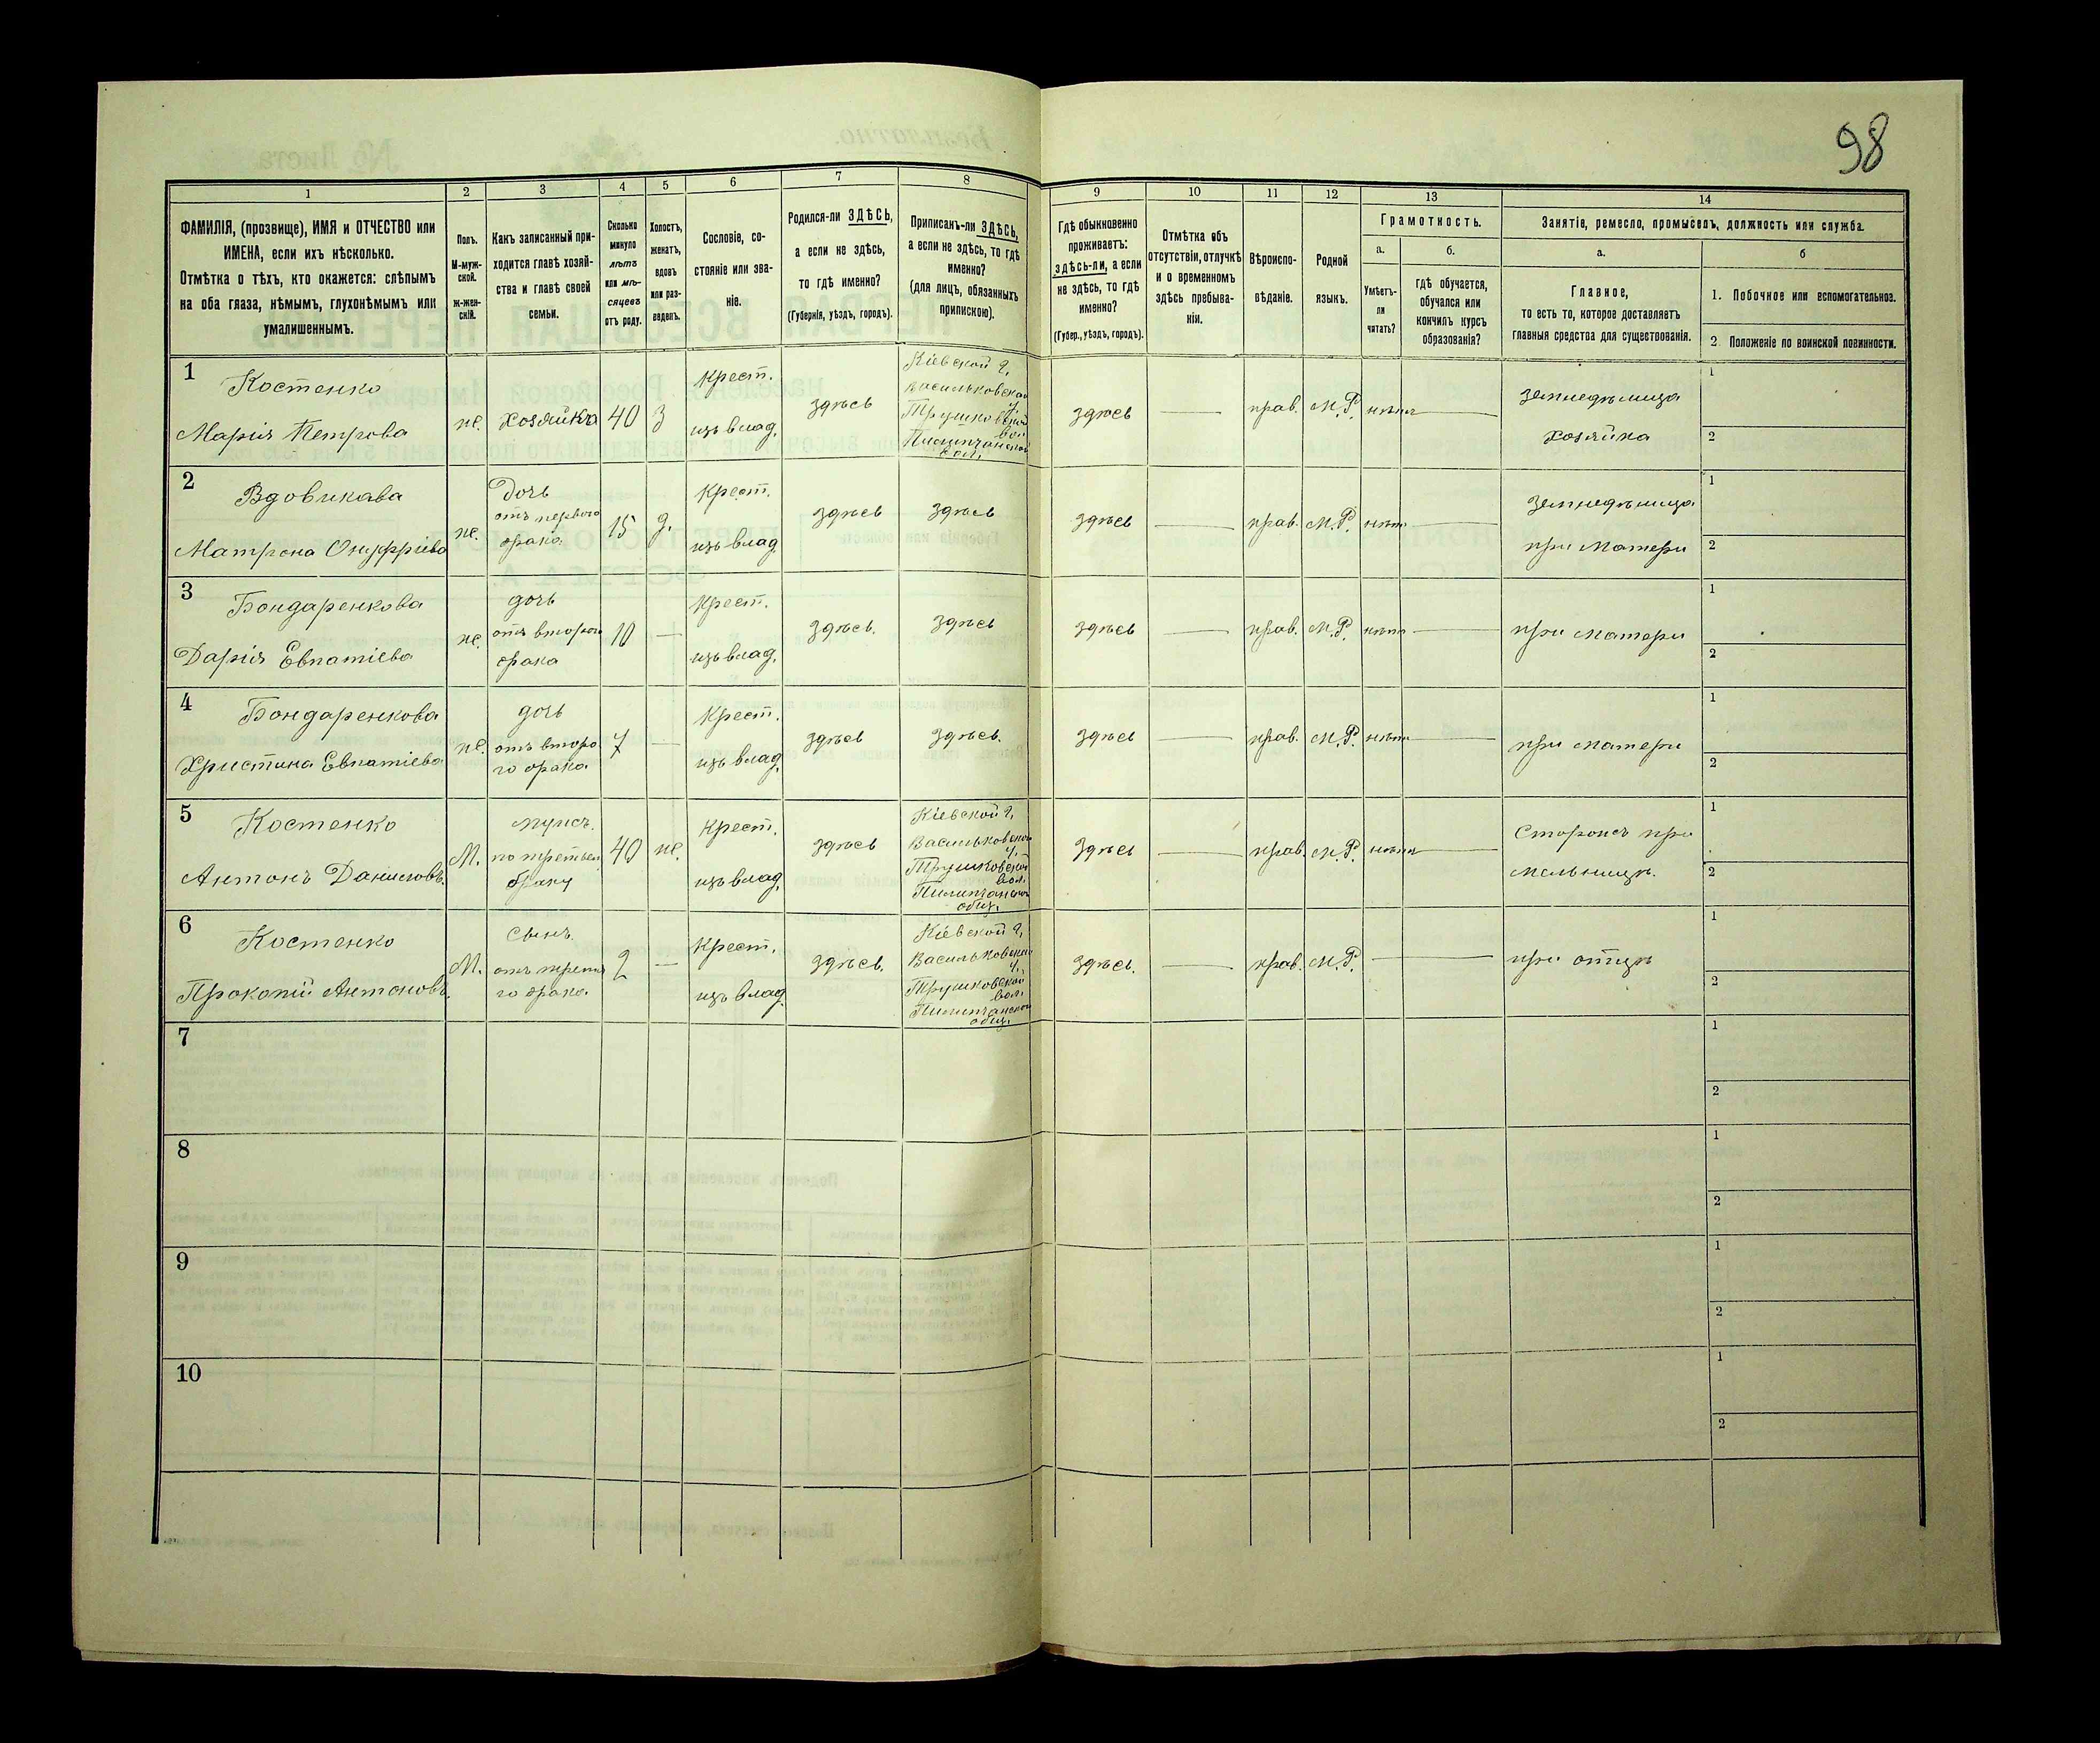 98
1
2
3
4
5
6
7
8
9
10
11
12
13
14
ФАМИЛІЯ, (прозвище), ИМЯ и ОТЧЕСТВО или
ИМЕНА, если ихъ нѣсколько.
Отмѣтка о тѣхъ, кто окажется: слѣпымъ
на оба глаза, нѣмымъ, глухонѣмымъ или
умалишеннымъ.
Полъ.
М-муж-
ской.
ж-жен-
скій.
Какъ записанный при-
ходится главѣ хозяй-
ства и главѣ своей
семьи.
Сколько
минуло
лѣтъ
или мѣ-
сяцевъ
отъ роду.
Холостъ,
женатъ,
вдовъ
или раз-
веденъ.
Сословіе, со-
стояніе или зва-
ніе.
Родился-ли ЗДѢСЬ,
а если не здѣсь,
то гдѣ именно?
(Губернія, уѣздъ, городъ).
Приписанъ-ли ЗДѢСЬ,
а если не здѣсь, то гдѣ
именно?
(для лицъ, обязанныхъ
припискою).
Гдѣ обыкновенно
проживаетъ:
здѣсь-ли, а если
не здѣсь, то гдѣ
именно?
(Губер., уѣздъ, городъ).
Отмѣтка объ
отсутствіи, отлучкѣ
и о временномъ
здѣсь пребыва-
ніи.
Вѣроиспо-
вѣданіе.
Родной
языкъ.
Грамотность.
а.
Умѣетъ-
ли
читать?
б.
гдѣ обучается,
обучался или
кончилъ курсъ
образованія?
Занятіе, ремесло, промыселъ, должность или служба.
а.
Главное,
то есть то, которое доставляетъ
главныя средства для существованія.
б
1. Побочное или вспомогательное.
2 Положеніе по воинской повинности.
1
Костенко
Марія Петрова
ж.
Хозяйка
40
З
Крест.
изъ влад.
здѣсь
Кіевской г.
Васильковскаго
у.
Трушковской
вол.
Пилипчанской
здѣсь
прав.
М.Р.
нѣтъ
земледѣлица
хозяйка
1
2
2
Вдовикава
Матрона Онуфріева
ж.
Дочь
отъ перваго
брака
15
д.
Крест.
изъ влад.
здѣсь
здѣсь
здѣсь
прав.
М.Р.
нѣтъ
земледѣлица
при матери
1
2
3
Бондаренкова
Дарія Евпатіева
ж.
дочь
отъ второго
брака
10
Крест.
изъ влад.
здѣсь.
здѣсь
здѣсь
прав.
М.Р.
нѣтъ
при матери
1
2
4
Бондаренкова
Христина Евпатіева
ж.
дочь
отъ второ
го брака
7
Крест.
изъ влад.
здѣсь
здѣсь.
здѣсь
прав.
М.Р.
нѣтъ
при матери
1
2
5
Костенко
Антонъ Даниловъ.
М.
мужъ.
по третьему
браку
40
ж.
Крест.
изъ влад.
здѣсь
Кіевской г.
Васильковскаго
у.
Трушковской
вол.
Пилипчанской
общ.
здѣсь
прав.
М.Р.
нѣтъ
Сторожъ при
мельницѣ.
1
2
6
Костенко
Прокопій Антоновъ.
М.
Сынъ
отъ третья
го брака
2
Крест.
изъ влад.
здѣсь.
Кіевской г.
Васильковскаго
у.
Трушковской
вол.
Пилипчанской
общ.
здѣсь.
прав.
М.Р.
при отцѣ
1
2
7
1
2
8
1
2
9
1
2
10
1
2